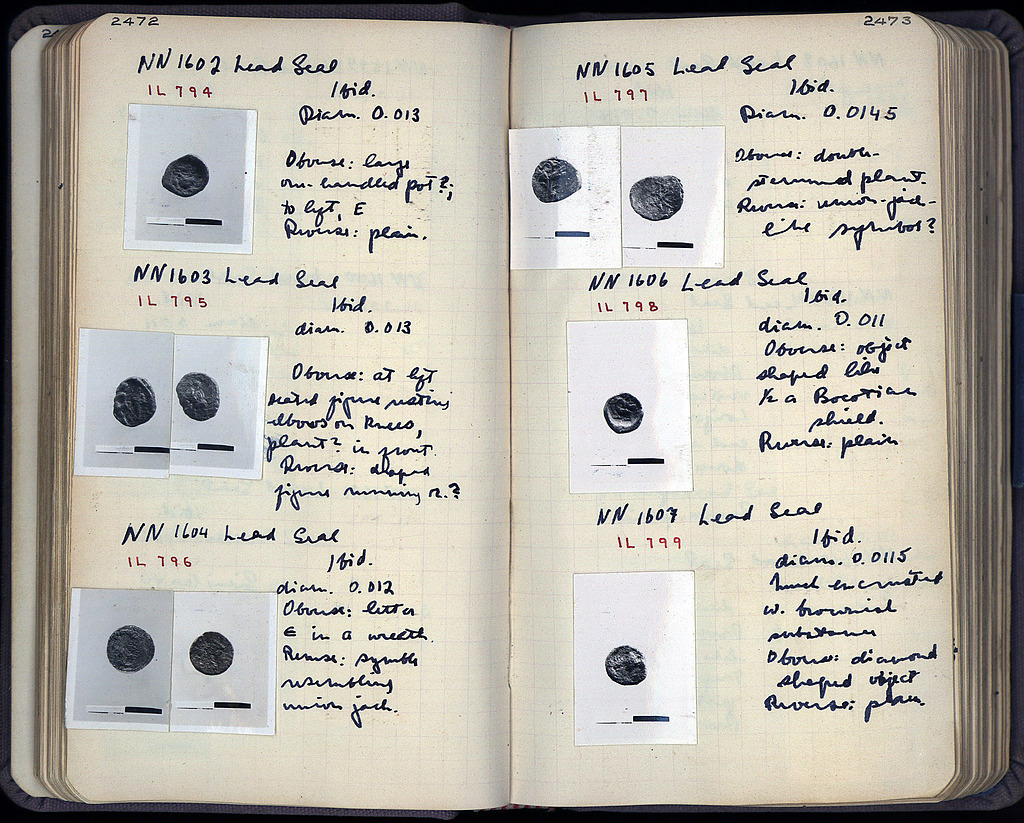 2472
NN 1602 Lead Seal
IL 794
Ibid.
Diam. 0.013
Obverse: large
one-handled pot?;
to left, E
Reverse: plain.
NN 1603 Lead Seal
IL 795
Ibid.
diam. 0.013
Obverse: at left
seated figure resting
elbows on knees,
plant? in front.
Reverse: draped
figure running r.?
NN 1604 Lead Seal
IL 796
Ibid.
diam. 0.012
Obverse: letter
E in a wreath.
Reverse: symbol
resembling
union jack.
2473
NN 1605 Lead Seal
IL 797
Ibid.
Diam. 0.0145
Obverse: double-
stemmed plant.
Reverse: union-jack-
like symbol?
NN 1606 Lead Seal
IL 798
Ibid.
diam. 0.011
Obverse: object
shaped like
½ a Boeotian
shield.
Reverse: plain
NN 1607 Lead Seal
IL 799
Ibid.
diam. 0.0115
Much encrusted
w. brownish
substance
Obverse: diamond
shaped object
Reverse: plain.